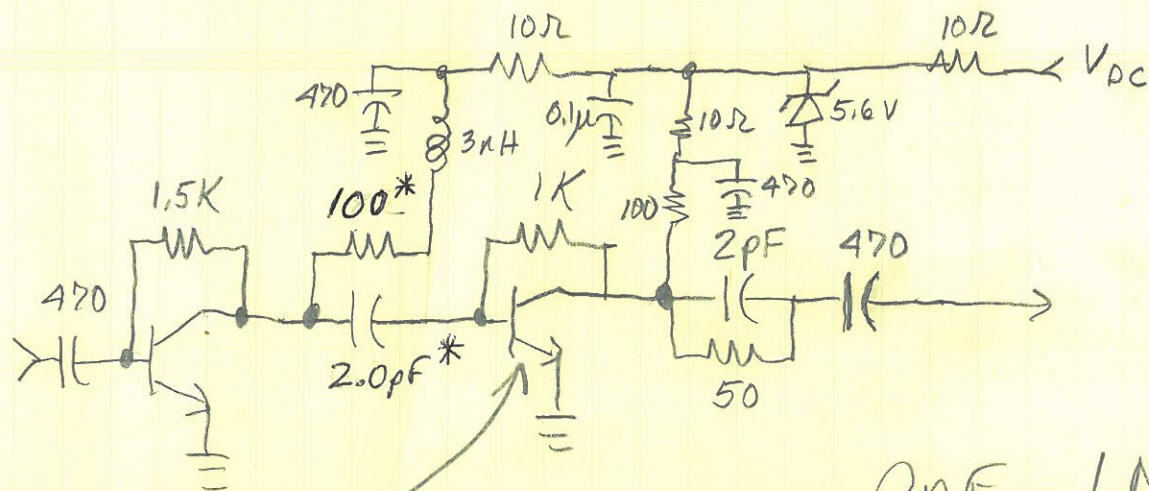 10Ω 10Ω
V_DC
470 0.1μ 10Ω 5.6V
3nH
1.5K 100* 1K 100 470
2pF 470
470
2.0pF*
50
2pF